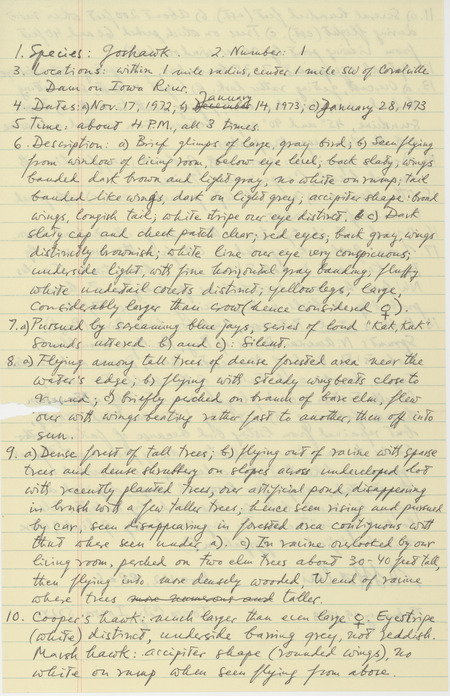 1. Species: Goshawk   2. Number: 1
3. Locations: within 1 mile radius, center 1 mile SW of Coralville
Dam on Iowa River.
4. Dates: a) Nov. 17, 1972, b) December January 14, 1973; c) January 28, 1973
5 Time: about 4 P.M., all 3 times.
6. Description: a) Brief glimps of large, gray bird; b) Seen flying
from window of living room, below eye level, back slaty, wings
banded dark brown and light gray, no white on rump; tail
banded like wings, dark on light grey; accipiter shape: broad
wings, longish tail; white stripe over eye distinct, c) Dark
slaty cap and cheek patch clear; red eyes; back gray, wings
distinctly brownish; white line over eye very conspicuous;
underside light, with fine horizontal gray banding, fluffy
white undertail coverts distinct; yellow legs; large,
considerably larger than crow (hence considered ♀).
7. a) Pursued by screaming blue jays, series of loud "Kak, Kak"
sounds uttered. b) and c): Silent.
8. a) Flying among tall trees of dense forested area near the
water's edge; b) flying with steady wingbeats close to
ground; c) briefly perched on branch of bare elm, flew
over with wings beating rather fast to another, then off into
sun.
9. a) Dense forest of tall trees; b) flying out of ravine with sparse
trees and dense shrubbery on slopes across undeveloped lot
with recently planted trees, over artificial pond, disappearing
in brush with a few taller trees; hence seen rising and pursued
by car, seen disappearing in forested area contiguous with
that where seen under a). c) In ravine overlooked by our
living room, perched on two elm trees about 30-40 feet tall,
then flying into more densely wooded, W end of ravine
where trees more numerous and taller.
10. Cooper's hawk: much larger than even large ♀. Eyestripe
(white) distinct, underside barring grey, not reddish.
Marsh hawk: accipiter shape (rounded wings), no
white on rump when seen flying from above.